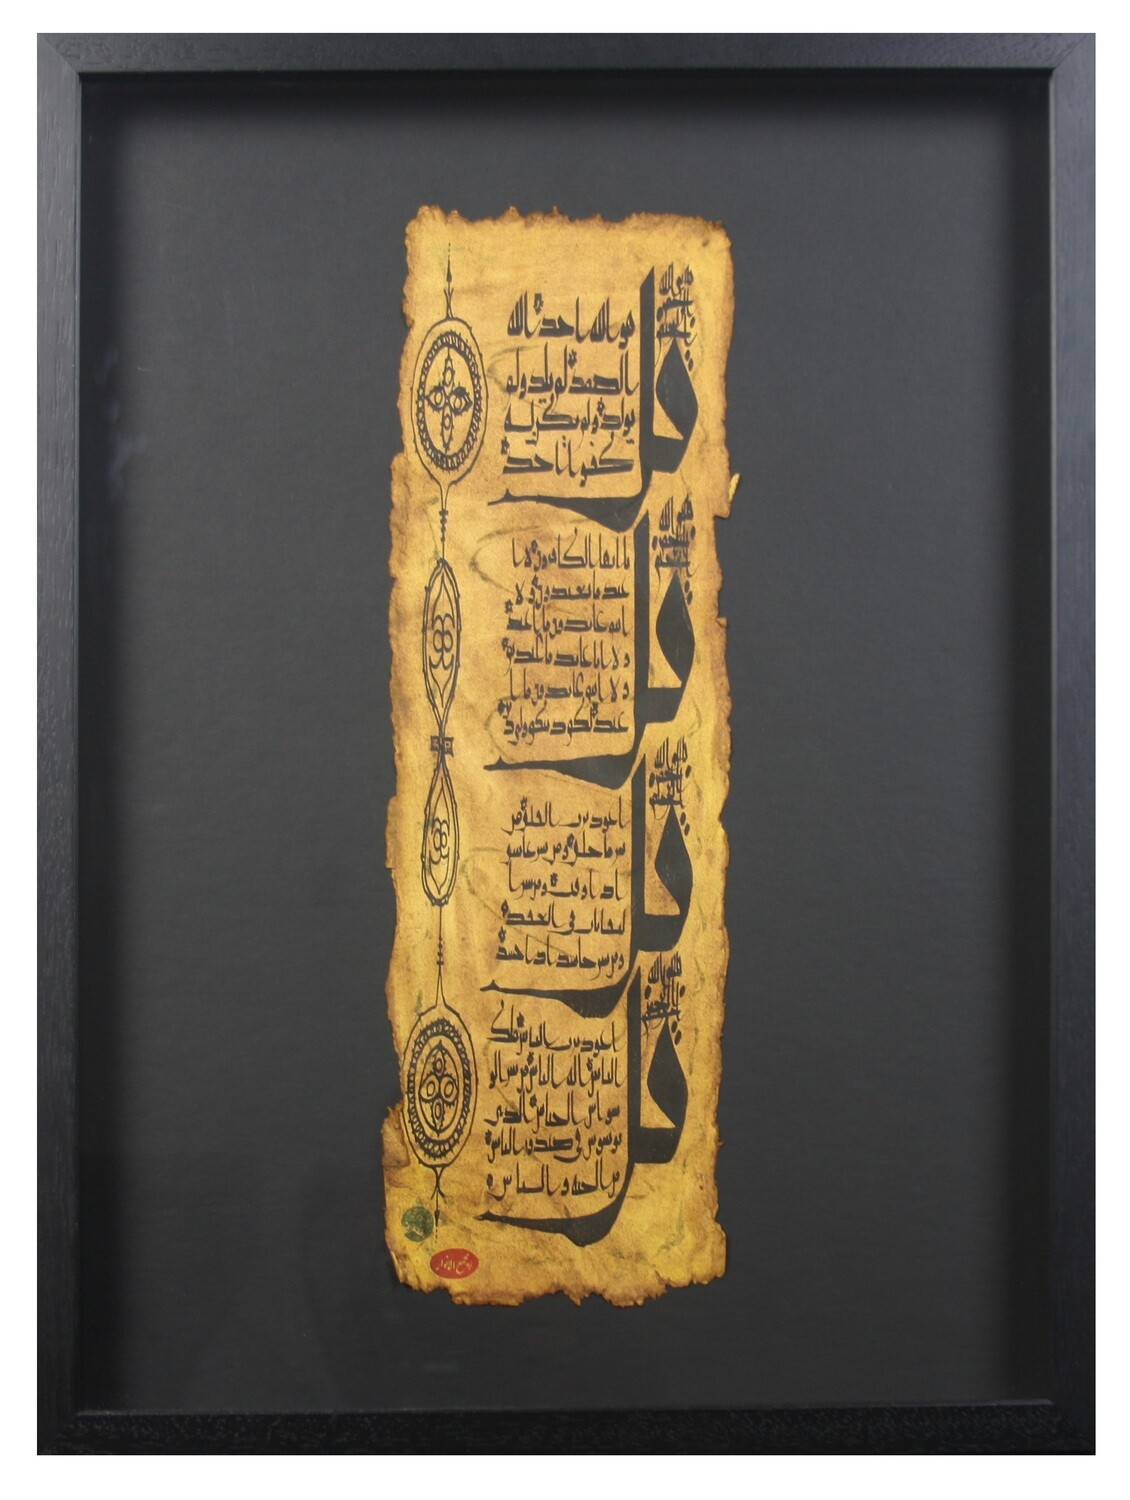 بسم الله
الرحمن
الرحيم
قل
هو الله احد الله
الصمد لم يلد و لم
يولد و لم يكن له
كفوا احد
بسم الله
الرحمن
الرحيم
قل
يا ايها الكافرون لا ا
عبد ما تعبدون و لا
انتم عابدون ما اعبد
و لا انا عابد ما عبدتم
و لا انتم عابدون ما ا
عبد لكم دينكم ولي دين
بسم الله
الرحمن
الرحيم
قل
اعوذ برب الفلق من
شر ما خلق و من شر غاسق
اذا وقب و من شر ا
لنفاثات في العقد
و من شر حاسد اذا حسد
بسم الله
الرحمن
الرحيم
قل
اعوذ برب الناس ملك
الناس اله الناس من شر الو
سواس الخناس الذي
يوسوس في صدور الناس
من الجنة و الناس